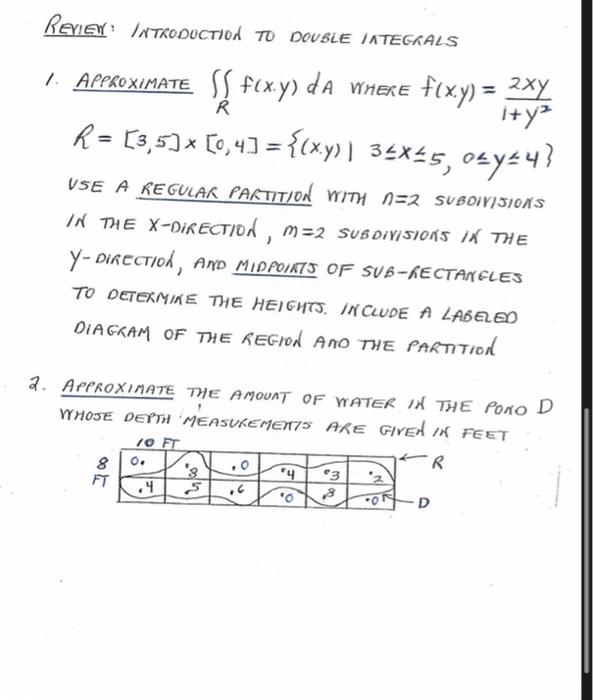 REVIEW: INTRODUCTION TO DOUBLE INTEGRALS
1. APPROXIMATE ∬_R f(x,y) dA WHERE f(x,y) = 2xy/(1+y²)
R = [3,5] x [0,4] = {(x,y) | 3≤x≤5, 0≤y≤4}
USE A REGULAR PARTITION WITH n=2 SUBDIVISIONS
IN THE X-DIRECTION, m=2 SUBDIVISIONS IN THE
Y-DIRECTION, AND MIDPOINTS OF SUB-RECTANGLES
TO DETERMINE THE HEIGHTS. INCLUDE A LABELED
DIAGRAM OF THE REGION AND THE PARTITION
2. APPROXIMATE THE AMOUNT OF WATER IN THE POND D
WHOSE DEPTH MEASUREMENTS ARE GIVEN IN FEET
10 FT
8 FT 0. .8 .0 .4 .3 .2 R
.4 .5 .6 .0 .8 .0 D